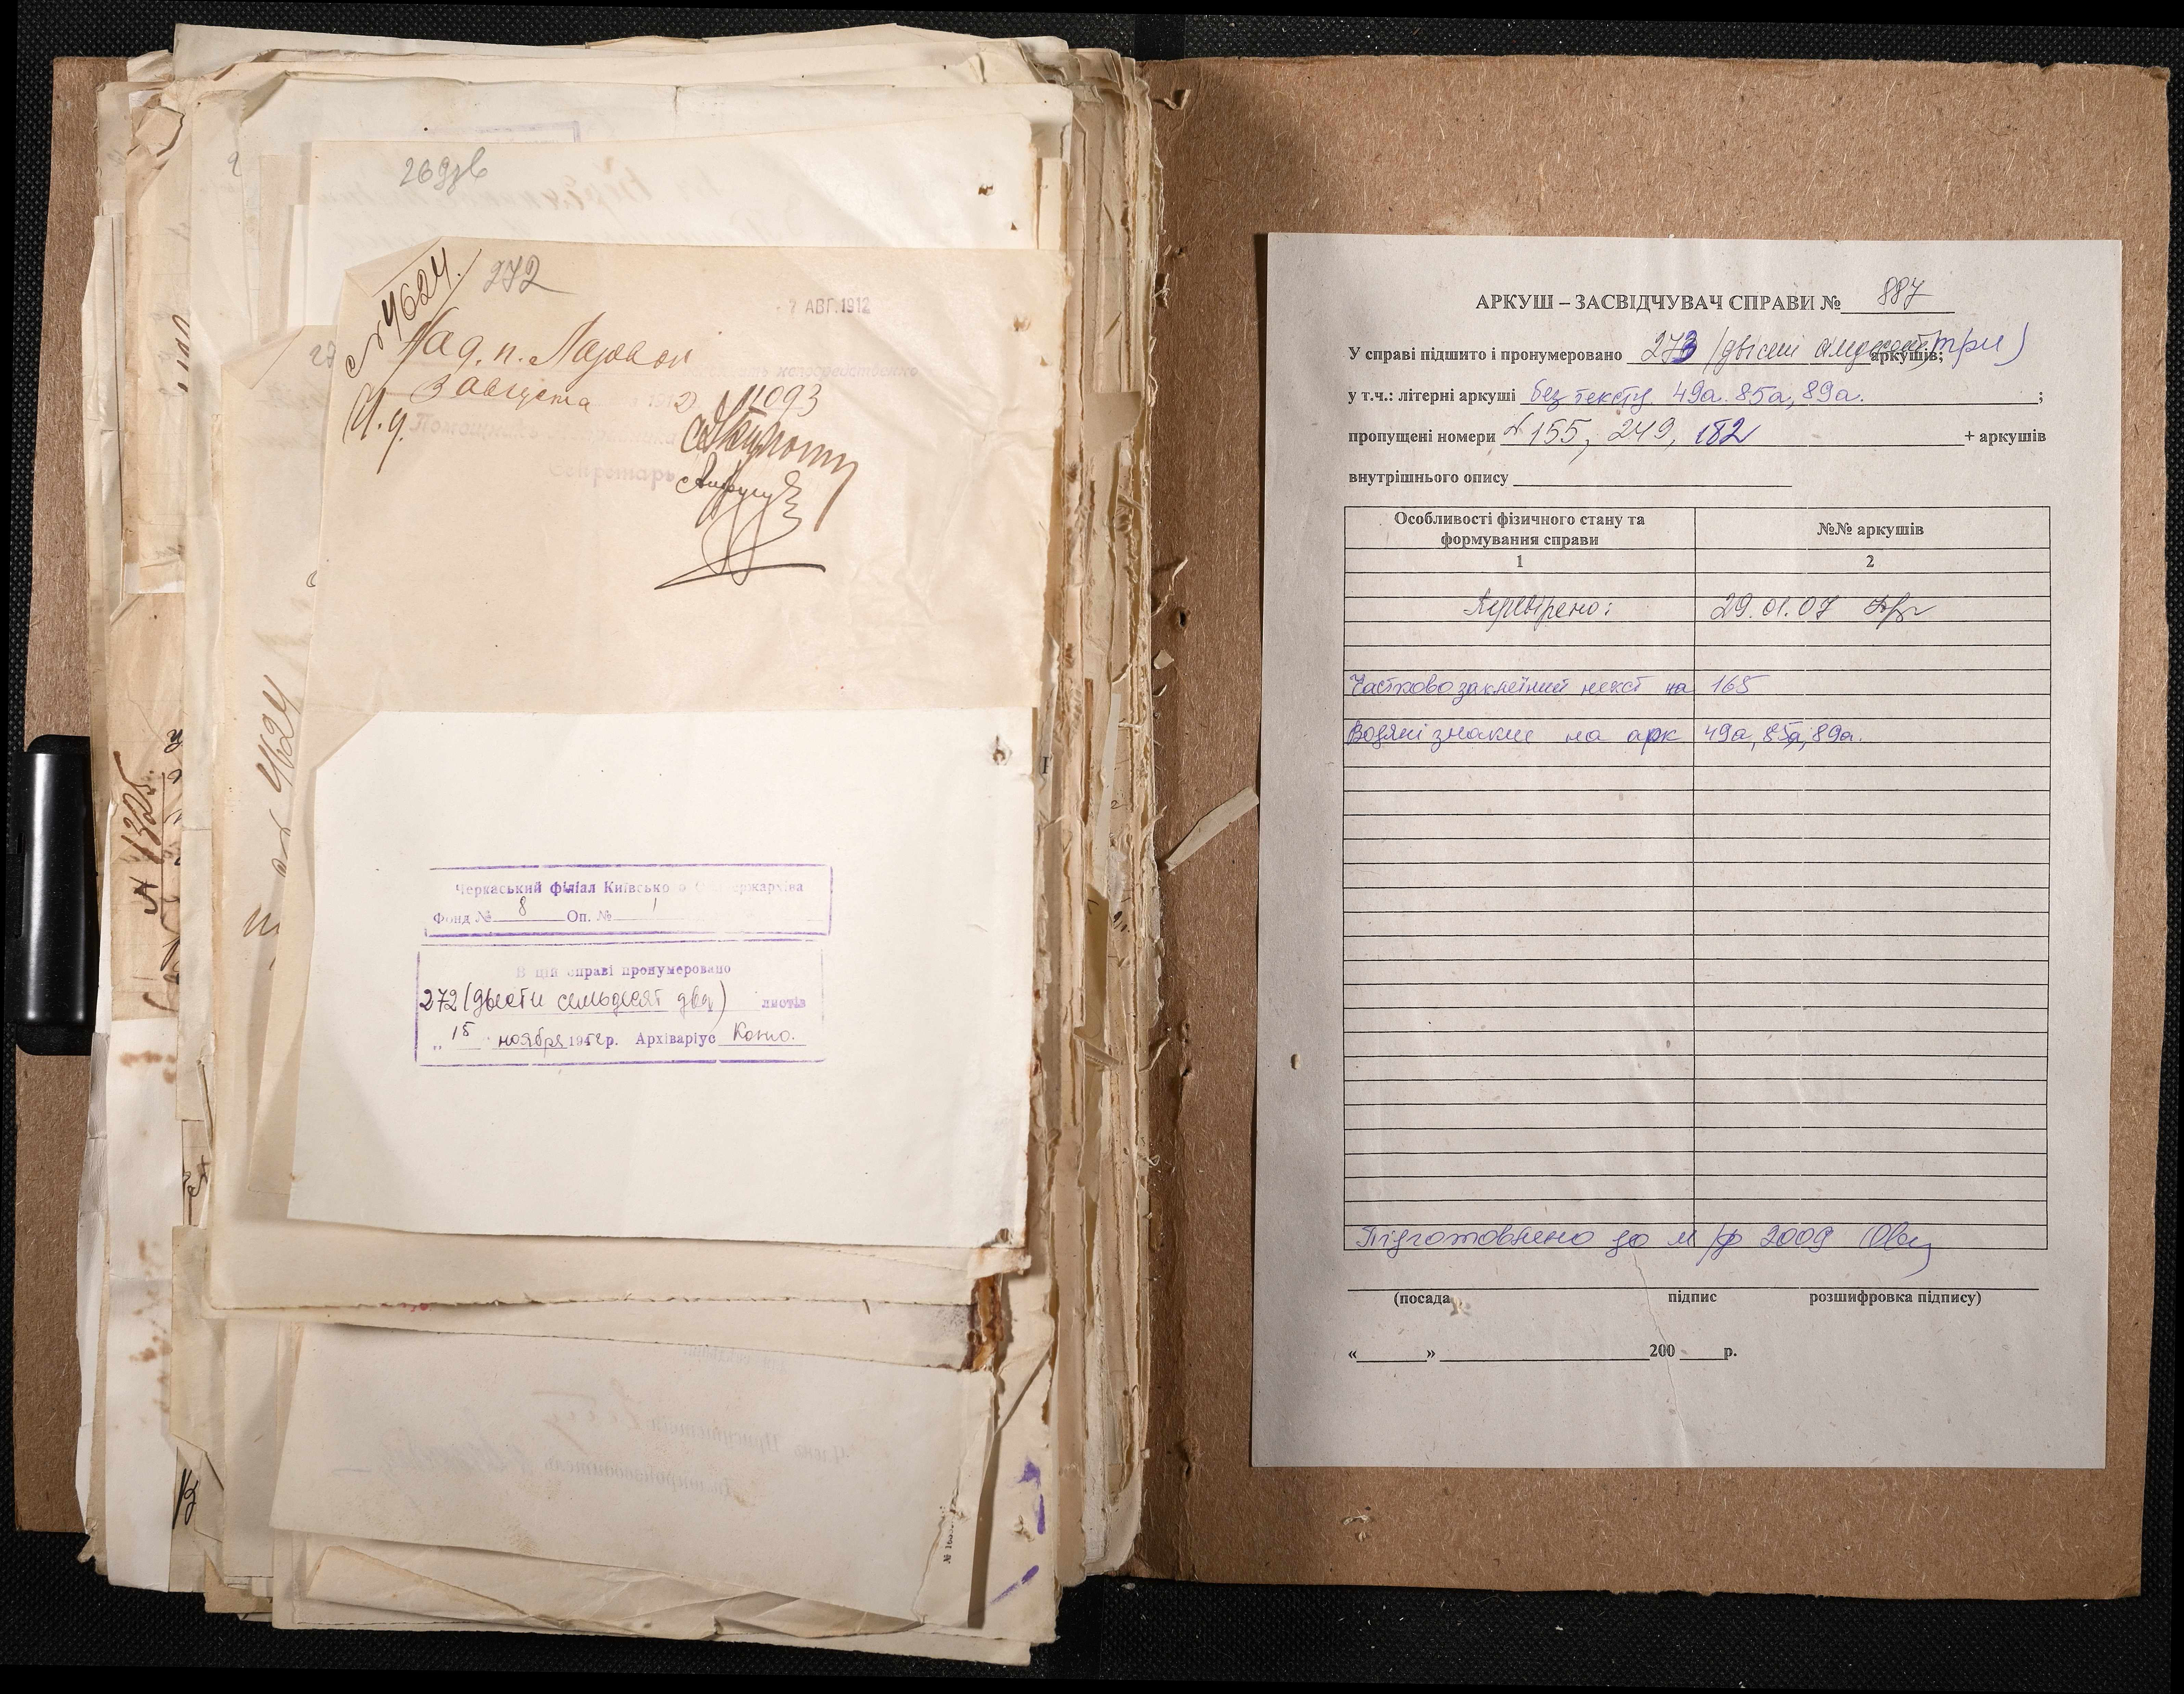 269зв
№4624.
272
7 АВГ. 1912
На д. п. Лозовой
3 августа 191 2 № 11093
И. д. Помощника
Секретарь
4624
№ 1325.
Черкаський філіал Київського Облдержархіва
Фонд № 8 Оп. № 1
В цій справі пронумеровано
272 (двести семьдесят два) листів
„ 15 ноября 1952 р. Архіваріус
АРКУШ – ЗАСВІДЧУВАЧ СПРАВИ № 887
У справі підшито і пронумеровано 273 (двісті сімдесят три) аркушів;
у т.ч.: літерні аркуші без тексту 49а. 85а, 89а. ;
пропущені номери № 155, 249, 182 + аркушів
внутрішнього опису
Особливості фізичного стану та формування справи
№№ аркушів
1 2
Перевірено: 29.01.07
Частково заклеїний текст на 165
Водяні знаки на арк 49а, 85а, 89а.
Підготовлено до м/ф 2009
(посада підпис розшифровка підпису)
« » 200 р.